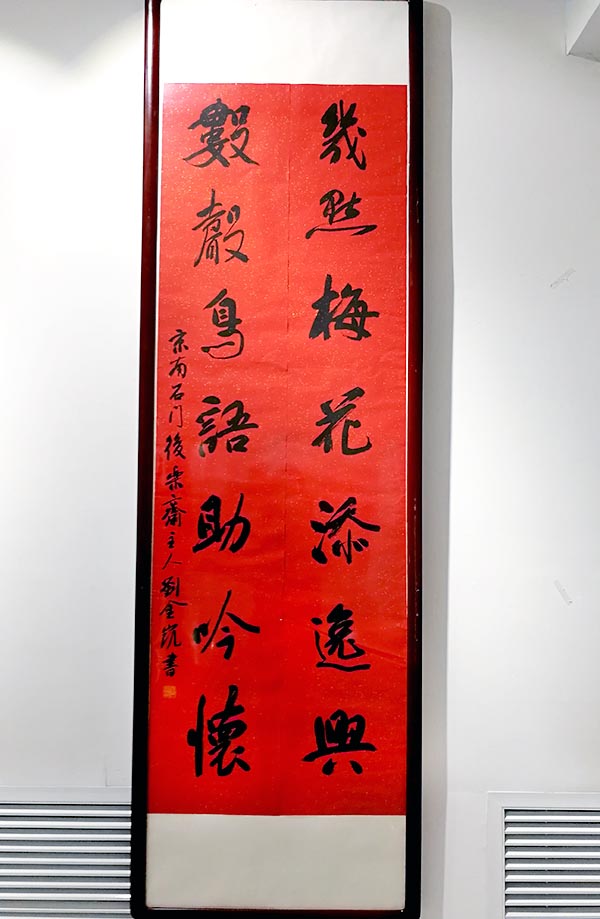 幾點梅花添逸興
數聲鳥語助吟懷
京南石门後樂齋主人劉金凱書